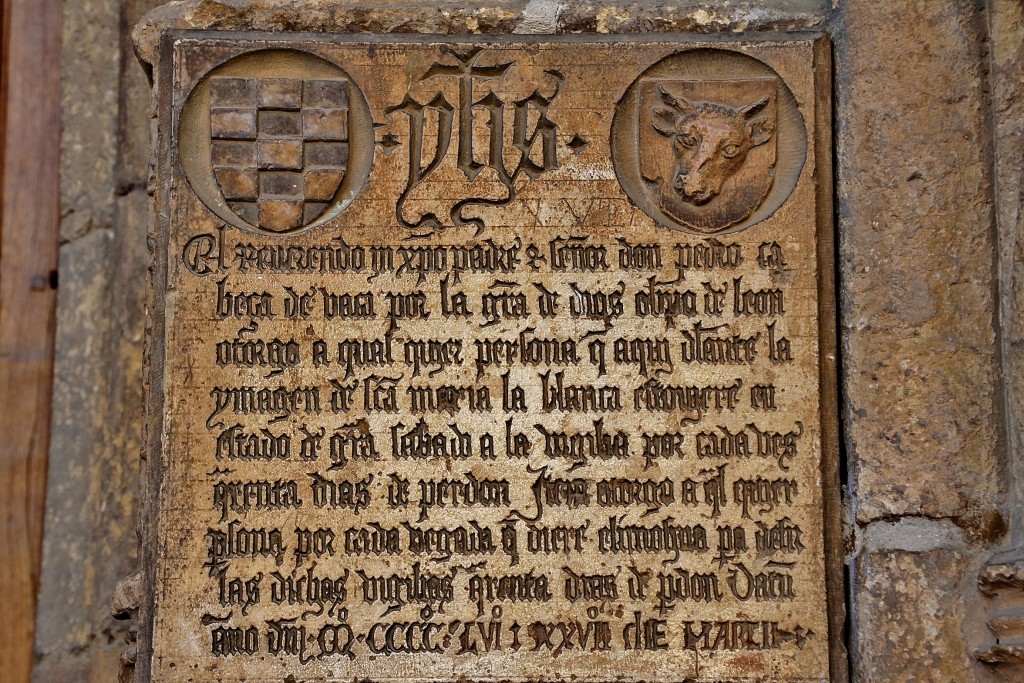 yhs
El reuerendo in xpo padre & señor don pedro ca
beça de vaca por la gra de dios obpo de leon
otorgo a qual quier persona q aqui dlante la
ymagen de sca maria la blanca estouyere en
estado de gra sabado a la vigilia por cada ves
qrenta dias de perdon Item otorgo a ql quier
psona por cada vegada q diere elimosna pa desir
las dichas vigilias qrenta dias de pdon Datu
anno dni Mº CCCCº LVI XXVII die MARCII